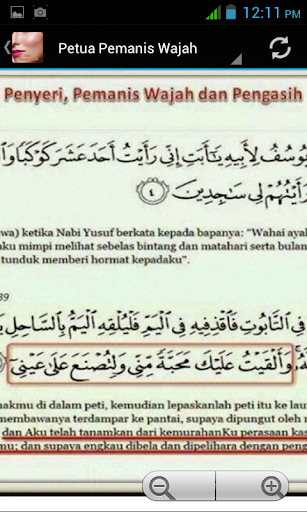 12:11 PM
Petua Pemanis Wajah
Penyeri, Pemanis Wajah dan Pengasih
يُوسُفُ لِأَبِيهِ يَٰٓأَبَتِ إِنِّى رَأَيْتُ أَحَدَ عَشَرَ كَوْكَبًا وَٱ
رَأَيْتُهُمْ لِى سَٰجِدِينَ ٤
wa) ketika Nabi Yusuf berkata kepada bapanya: "Wahai aya
ku mimpi melihat sebelas bintang dan matahari serta bulan
tunduk memberi hormat kepadaku".
39
فِى ٱلتَّابُوتِ فَٱقْذِفِيهِ فِى ٱلْيَمِّ فَلْيُلْقِهِ ٱلْيَمُّ بِٱلسَّاحِلِ
وَأَلْقَيْتُ عَلَيْكَ مَحَبَّةً مِّنِّى وَلِتُصْنَعَ عَلَىٰ عَيْنِىٓ
akmu di dalam peti, kemudian lepaskanlah peti itu ke lau
membawanya terdampar ke pantai, supaya dipungut oleh
dan Aku telah tanamkan dari kemurahanKu perasaan kas
mu; dan supaya engkau dibela dan dipelihara dengan peng